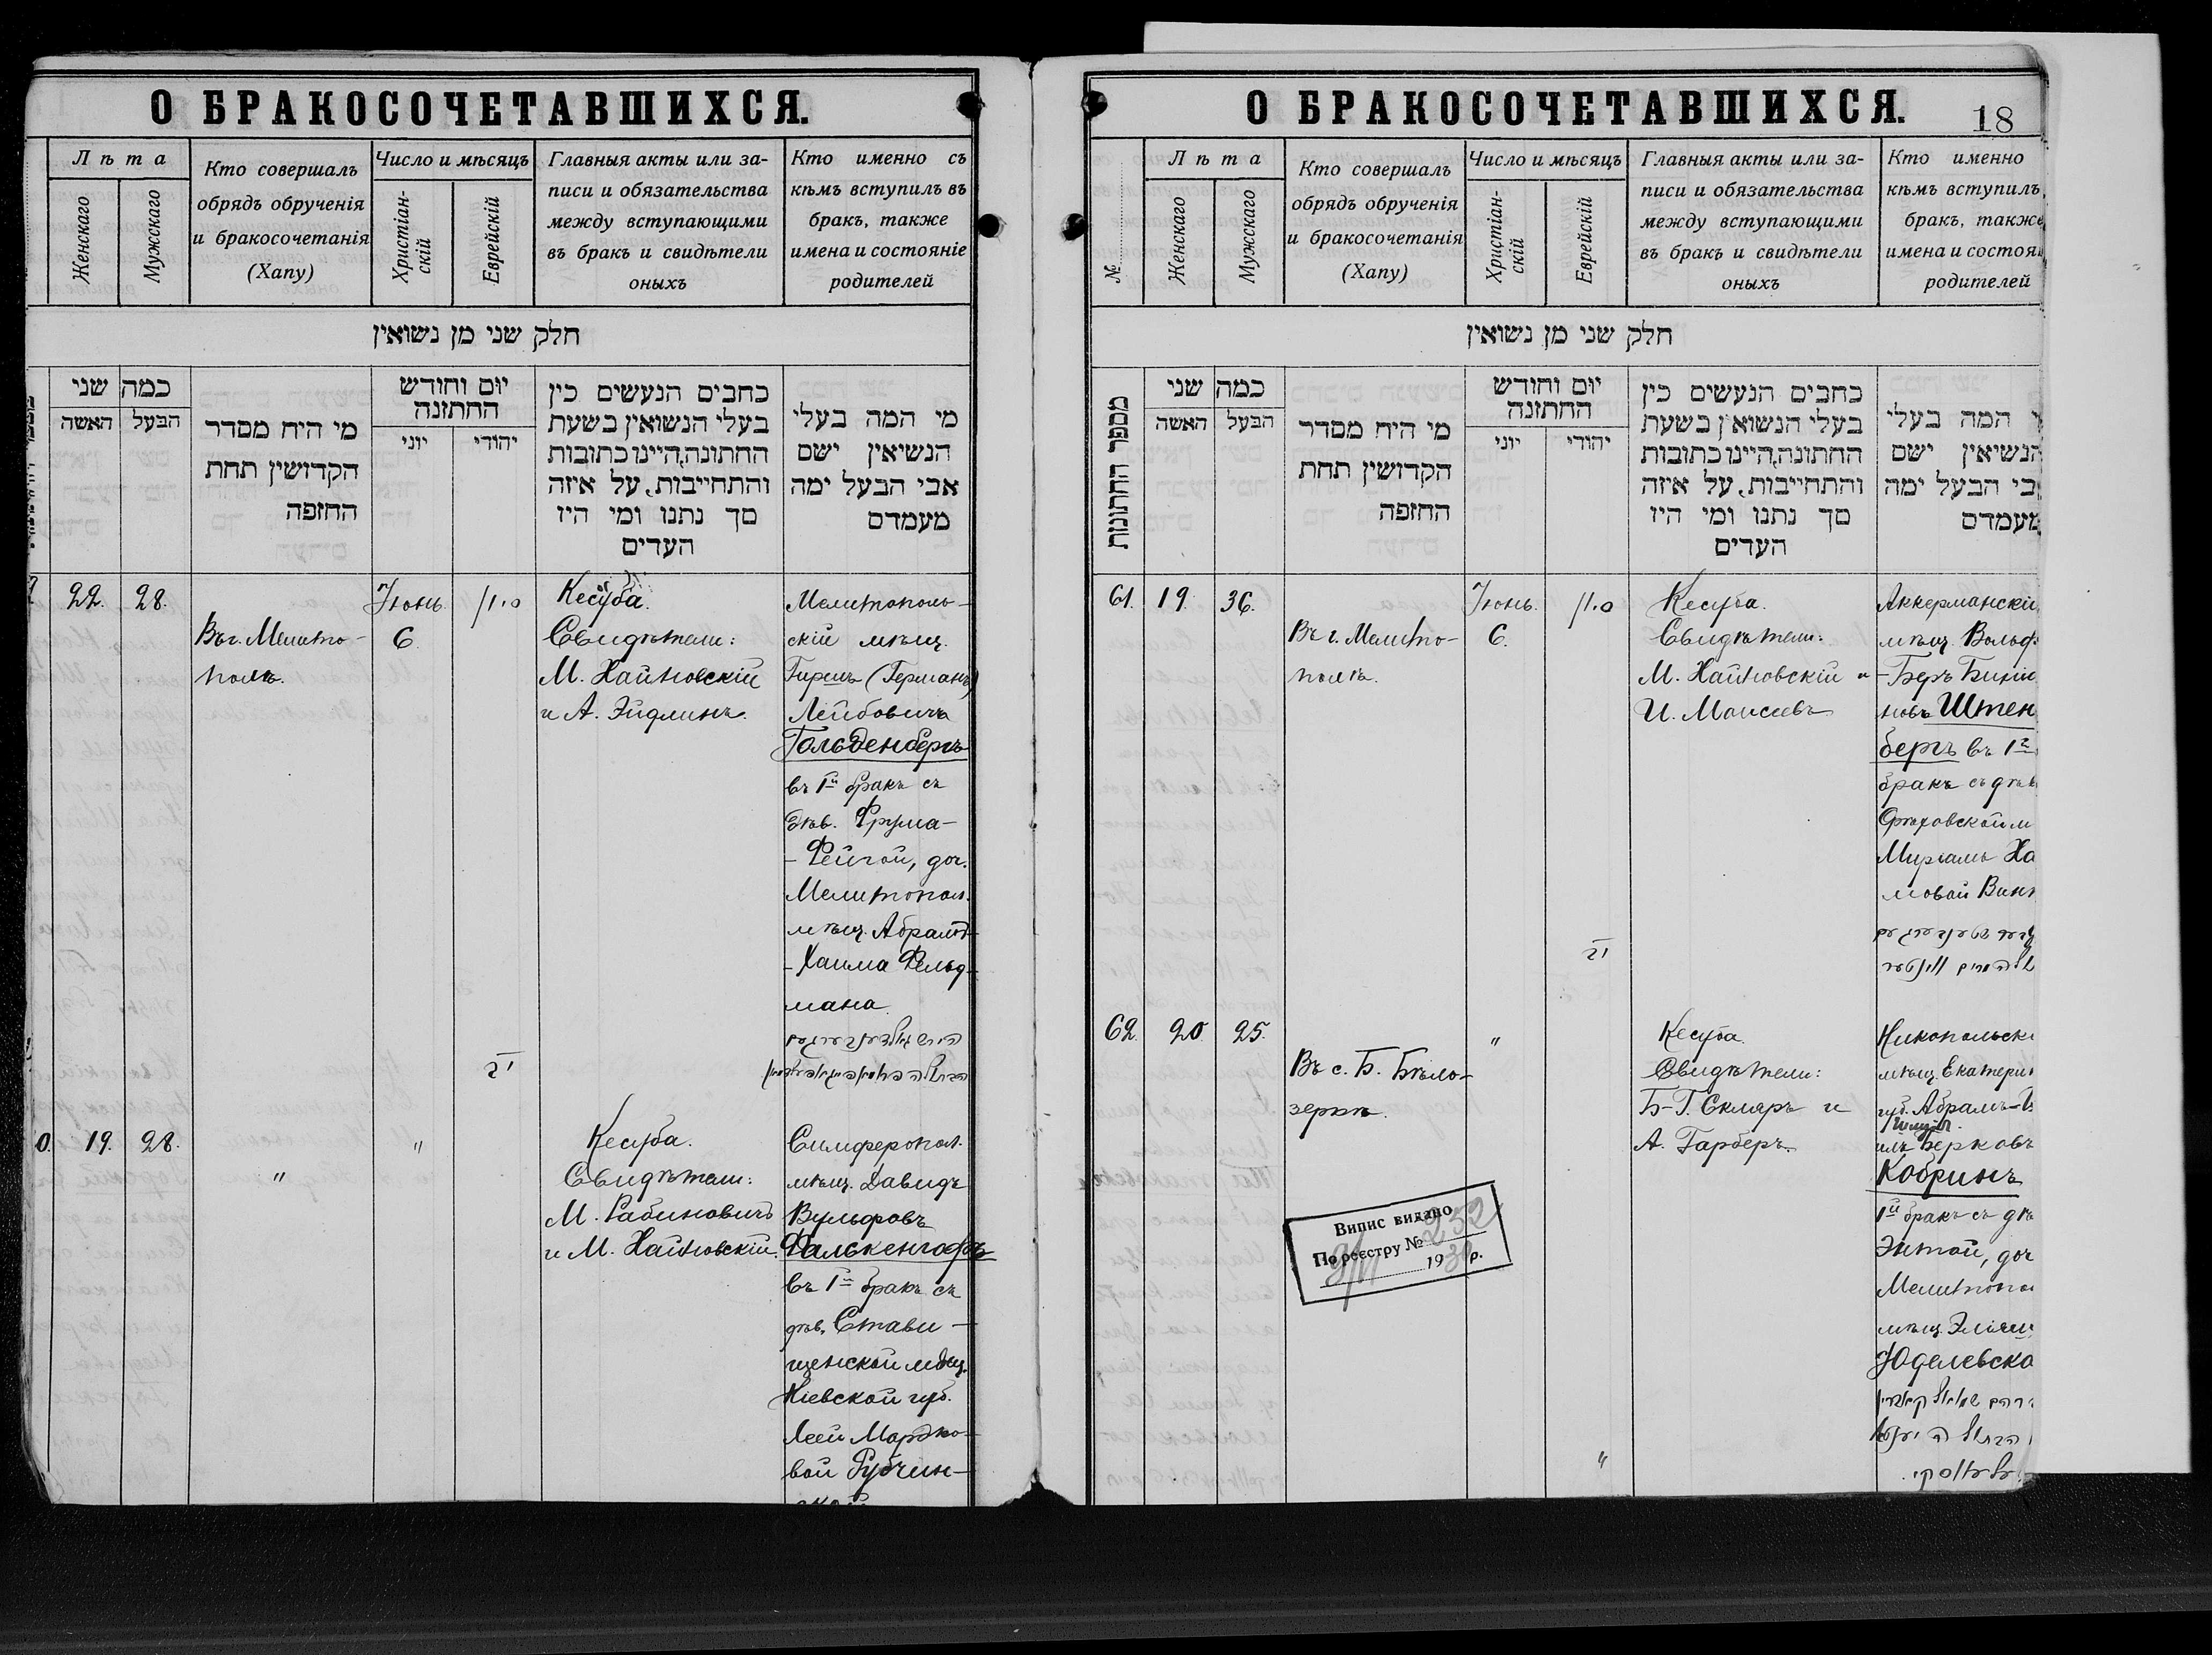 О БРАКОСОЧЕТАВШИХСЯ.
Лѣта
Женскаго
Мужскаго
Кто совершалъ
обрядъ обрученія
и бракосочетанія
(Хапу)
Число и мѣсяцъ
Христіан-
скій
Еврейскій
Главныя акты или за-
писи и обязательства
между вступающими
въ бракъ и свидѣтели
оныхъ
Кто именно съ
кѣмъ вступилъ въ
бракъ, также
имена и состояніе
родителей
חלק שני מן נשואין
כמה שני
הבעל האשה
מי היח מסדר
הקדושין תחת
החזפה
יום וחודש
החתזנה
יהודי יוני
כחבים הנעשים כין
בעלי הנשואין בשעת
החתונה,היינו כתובות
והתחייבות, על איזה
סך נתנו ומי היז
העדים
מי המה בעלי
הנשיאין ישם
אבי הבעל ימה
מעמדם
22. 28.
Въ г. Мелито-
полѣ.
Іюнь.
6
יב
Кесуба.
Свидѣтели:
М. Хайновскій
и А. Эйдлинъ.
Мелитополь-
скій мѣщ.
Гиршъ (Германъ)
Лейбовичъ
Гольденбергъ
въ 1й бракъ съ
дѣв. Фрума-
-Фейгой, доч.
Мелитопол.
мѣщ. Абрамъ-
-Хаима Фельд-
мана
0. 19. 28.
"
"
Кесуба.
Свидѣтели:
М. Рабиновичъ
и М. Хайновскій.
Симферопол.
мѣщ. Давидъ
Вульфовъ
Фалькенгофъ
въ 1й бракъ съ
дѣв. Стави-
щенской мѣщ.
Кіевской губ.
Леей Мордко-
вой Рубчин-
ской
О БРАКОСОЧЕТАВШИХСЯ.
18
№
Лѣта
Женскаго
Мужскаго
Кто совершалъ
обрядъ обрученія
и бракосочетанія
(Хапу)
Число и мѣсяцъ
Христіан-
скій
Еврейскій
Главныя акты или за-
писи и обязательства
между вступающими
въ бракъ и свидѣтели
оныхъ
Кто именно
кѣмъ вступилъ
бракъ, также
имена и состоя
родителей
חלק שני מן נשואין
מספר החתונות
כמה שני
הבעל האשה
מי היח מסדר
הקדושין תחת
החזפה
יום וחודש
החתזנה
יהודי יוני
כחבים הנעשים כין
בעלי הנשואין בשעת
החתונה,היינו כתובות
והתחייבות, על איזה
סך נתנו ומי היז
העדים
המה בעלי
הנשיאין ישם
אבי הבעל ימה
מעמדם
61. 19. 36.
Въ г. Мелито-
полѣ.
Іюнь.
6.
יב
Кесуба.
Свидѣтели:
М. Хайновскій и
И. Моисеевъ
Аккерманскій
мѣщ. Вольф
-Беръ
новъ Штен
бергъ въ 1й
бракъ съ дѣв
Орѣховской м
Миріамъ Ха
мовой Винн
62. 20. 25.
Въ с. Б. Бѣло-
зеркѣ.
"
"
Кесуба.
Свидѣтели:
Б-Г. Скляръ и
А. Гарберъ.
Никопольск
мѣщ. Екатерин
губ. Абрамъ-
илъ Берковъ
Кобринъ
1й бракъ съ дѣ
Энтой, доч
Мелитопо
мѣщ.
Юделевско
Випис видано
По реєстру № 252
193 р.